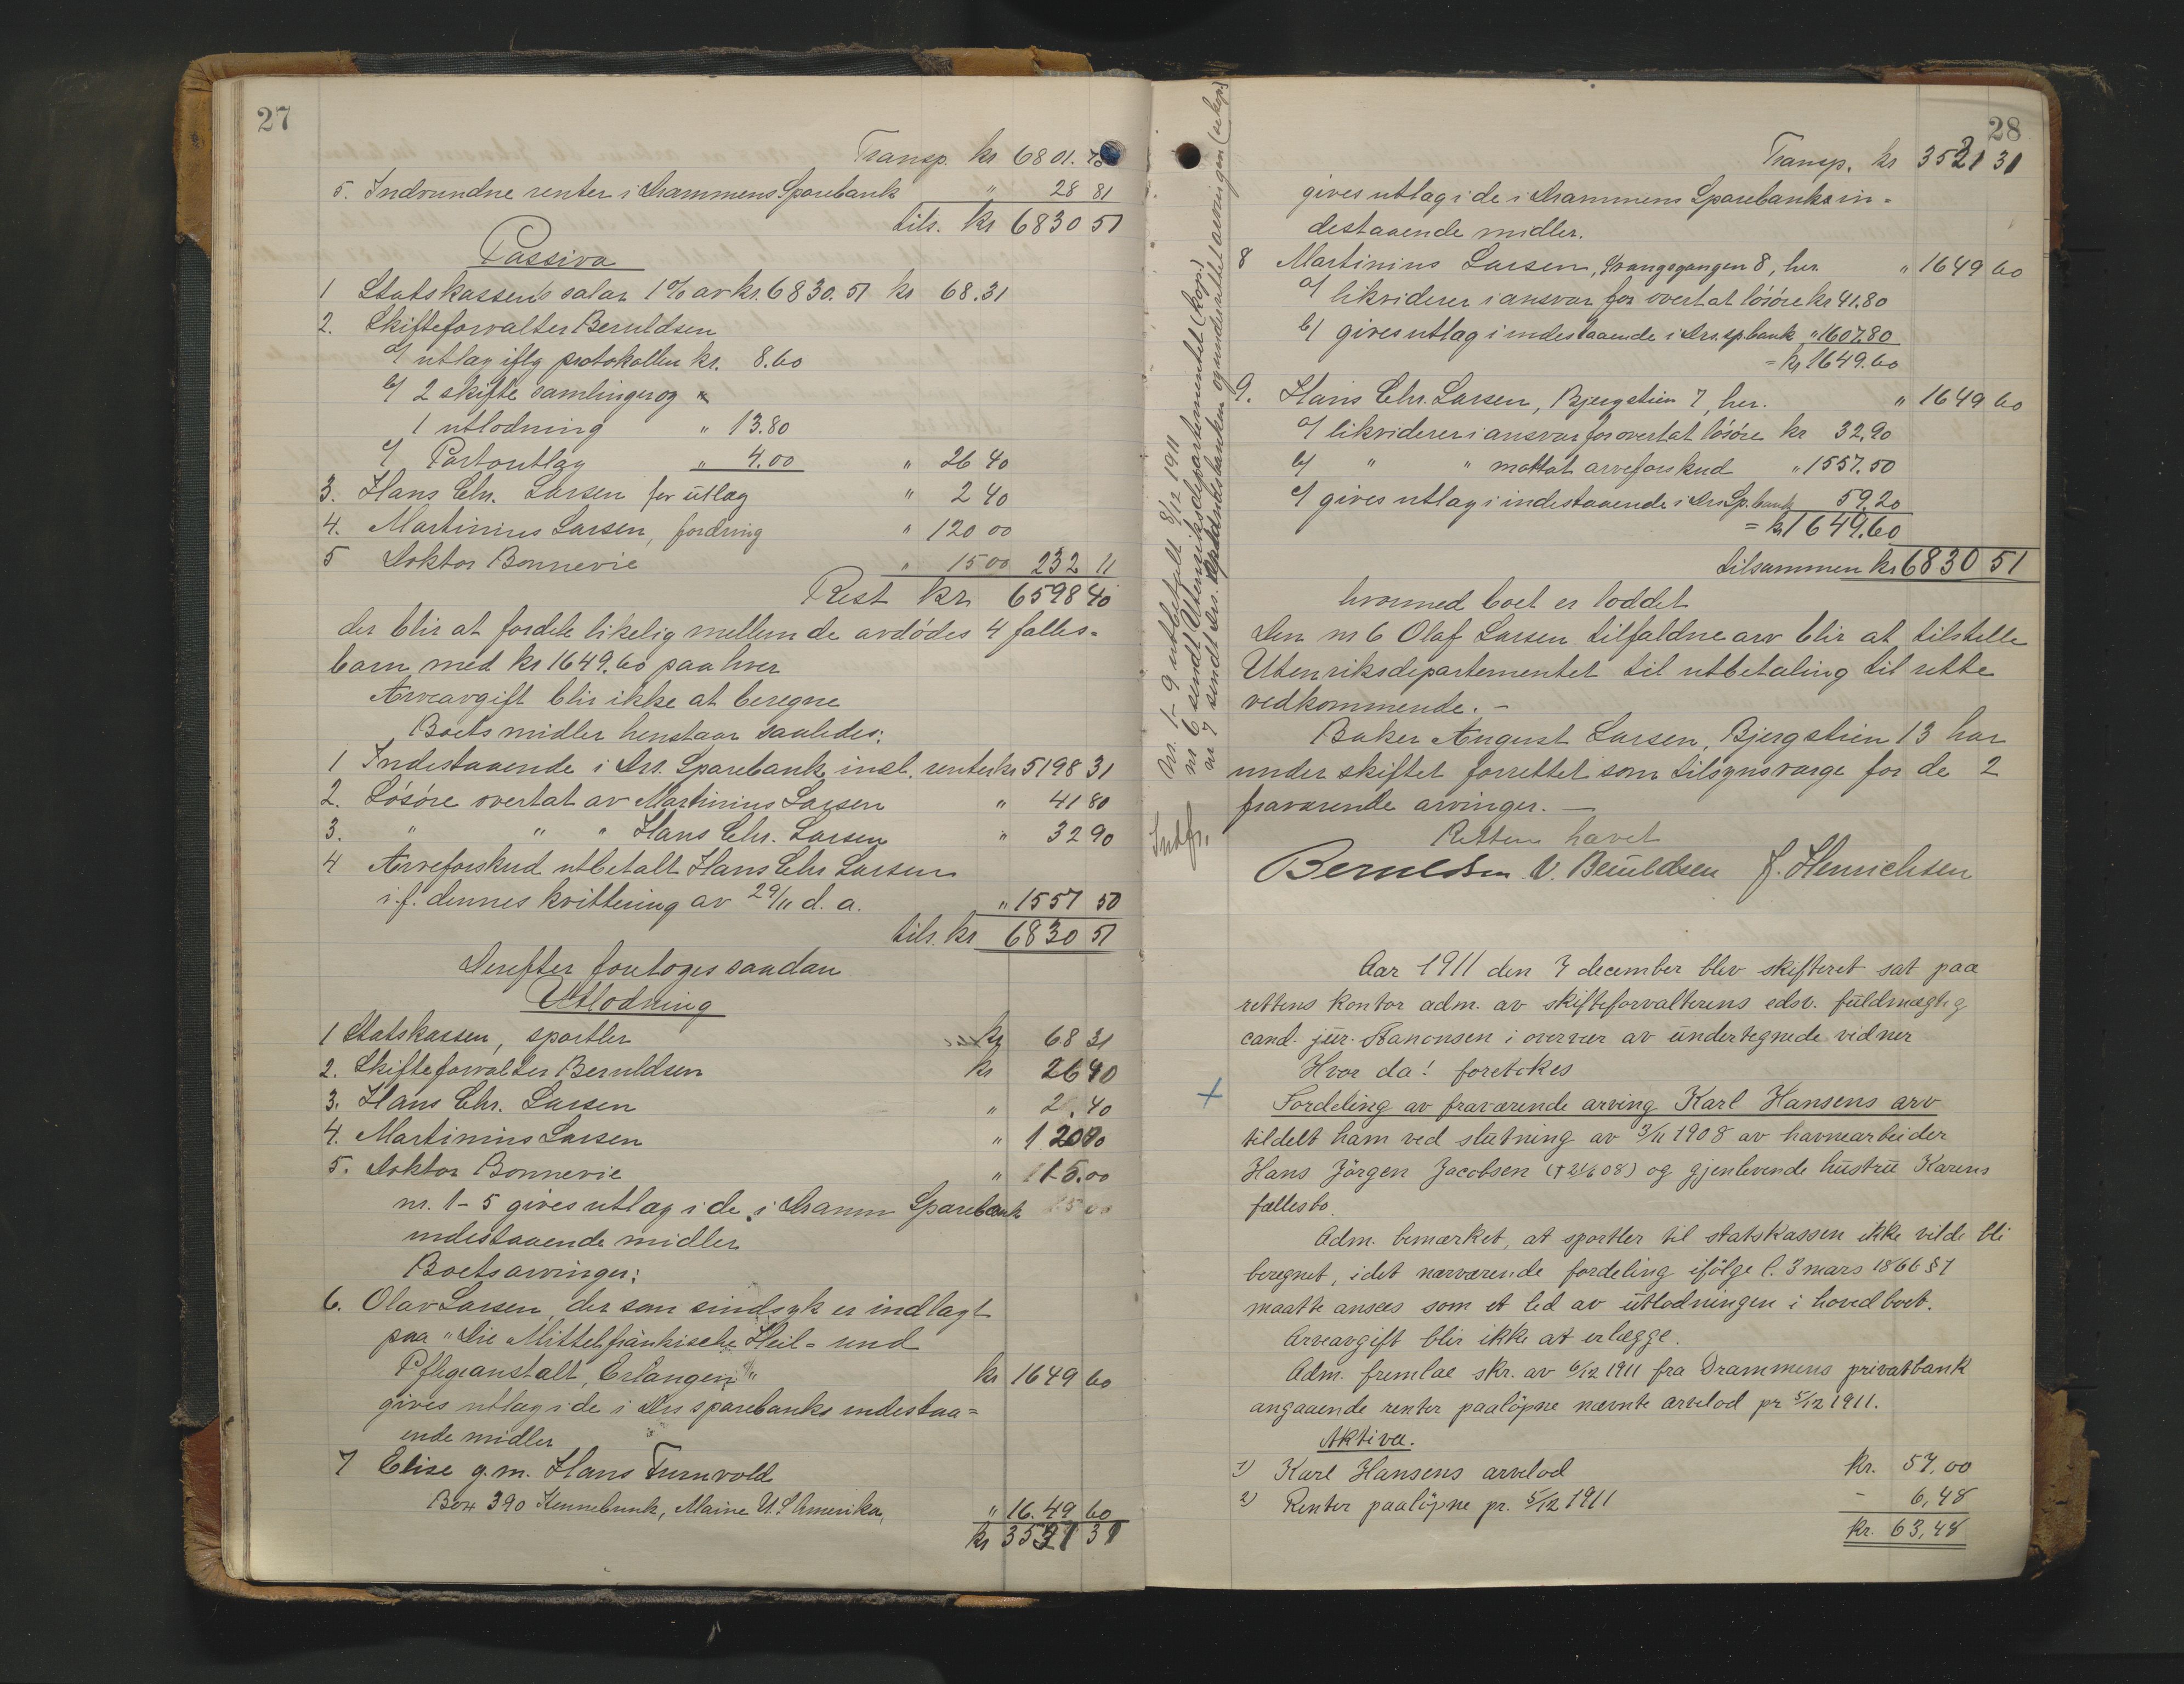 27
Transp. kr 6801.70
5. Indvundne renter i Drammens Sparebank " 28 81
tils. kr 6830 51
Passiva
1 Statskassens salar 1% av kr. 6830.51 kr 68.31
2. Skifteforvalter Beruldsen
a/ utlag iflg protokollen kr. 8.60
b/ 2 skiftesamlinger og
1 utlodning " 13.80
c/ Portoutlag " 4.00 " 26 40
3. Hans Chr. Larsen for utlæg " 2 40
4. Martinius Larsen, fordring " 120 00
5 Doktor Bonnevie " 15 00 232 11
Rest kr. 6598 40
der blir at fordele likelig mellem de avdødes 4 fælles-
barn med kr 1649.60 paa hver
Arveavgift blir ikke at beregne
Boets midler henstaar saaledes:
1 Indestaaende i Drs. Sparebank incl. renter kr 5198 31
2. Løsøre overtat av Martinius Larsen " 41 80
3. " " " Hans Chr. Larsen " 32 90
4 Arveforskud utbetalt Hans Chr Larsen
i.f. dennes kvittering av 29/11 d. a. " 1557 50
tils. kr 6830 51
Derefter foretoges saadan
Utlodning
1 Statskassen, sportler kr 68 31
2. Skifteforvalter Beruldsen kr 26 40
3. Hans Chr. Larsen " 2.40
4. Martinius Larsen " 120 00
5. Doktor Bonnevie " 15.00
nr. 1-5 gives utlag i de i Dramm Sparebank
indestaaende midler
Boets arvinger:
6. Olav Larsen, der som sindsyk er indlagt
paa "Die Mittelfränkische Heil- und
Pflegeanstalt, Erlangen" kr 1649 60
gives utlæg i de i Drs sparebanks indestaa-
ende midler
7 Elise g.m. Hans Turnvold
Box 390 Kennebunk, Maine U.S. Amerika, " 16.49 60
kr 3531 31
28
Transp. kr 3531 31
gives utlag i de i Drammens Sparebanks in-
destaaende midler.
8 Martinius Larsen, Vrangsgangen 8, her. " 1649 60
a/ likviderer i ansvar for overtat løsøre kr 41.80
b/ gives utlag i indestaaende i Drs. sp.bank " 1607.80
= kr 1649.60
9. Hans Chr. Larsen, Bjergstien 7, her. " 1649 60
a/ likviderer i ansvar for overtat løsøre kr 32.90
b/ " " mottat arveforskud " 1557.50
c/ gives utlag i indestaaende i Drs. Sp.bank 59.20
= kr 1649.60
tilsammen kr 6830 51
hvormed boet er loddet
Den nr 6 Olaf Larsen tilfaldne arv blir at tilstille
Utenriksdepartementet til utbetaling til rette
vedkommende. -
Baker August Larsen, Bjergstien 13 har
under skiftet forrettet som tilsynsværge for de 2
fraværende arvinger. -
Retten hævet
Beruldsen V. Beruldsen J. Henrichsen
Nr. 1-9 utbetalt 8/12 1911
nr 6 sendt Utenriksdepartementet (kop.)
nr 7 sendt Drs.
Aar 1911 den 7 december blev skifteret sat paa
rettens kontor adm. av skifteforvalterens edsv. fuldmægtig
cand. jur. Aanonsen i overvær av undertegnede vidner
Hvor da! foretokes
+ Fordeling av fraværende arving Karl Hansens arv
tildelt ham ved slutning av 3/11 1908 av havnearbeider
Hans Jörgen Jacobsen og gjenlevende hustru Karens
fællesbo.
Adm. bemærket, at sportler til statskassen ikke vilde bli
beregnet, idet nærværende fordeling ifölge l. 3 mars 1866 § 7
maatte ansees som et led av utlodningen i hovedboet.
Arveavgift blir ikke at erlægge.
Adm. fremla skr. av 6/12 1911 fra Drammens privatbank
angaaende renter paalöpne nævnte arvelod pr 5/12 1911.
Aktiva.
1) Karl Hansens arvelod kr. 57,00
2) Renter paalöpne pr. 5/12 1911 - 6,48
kr. 63,48